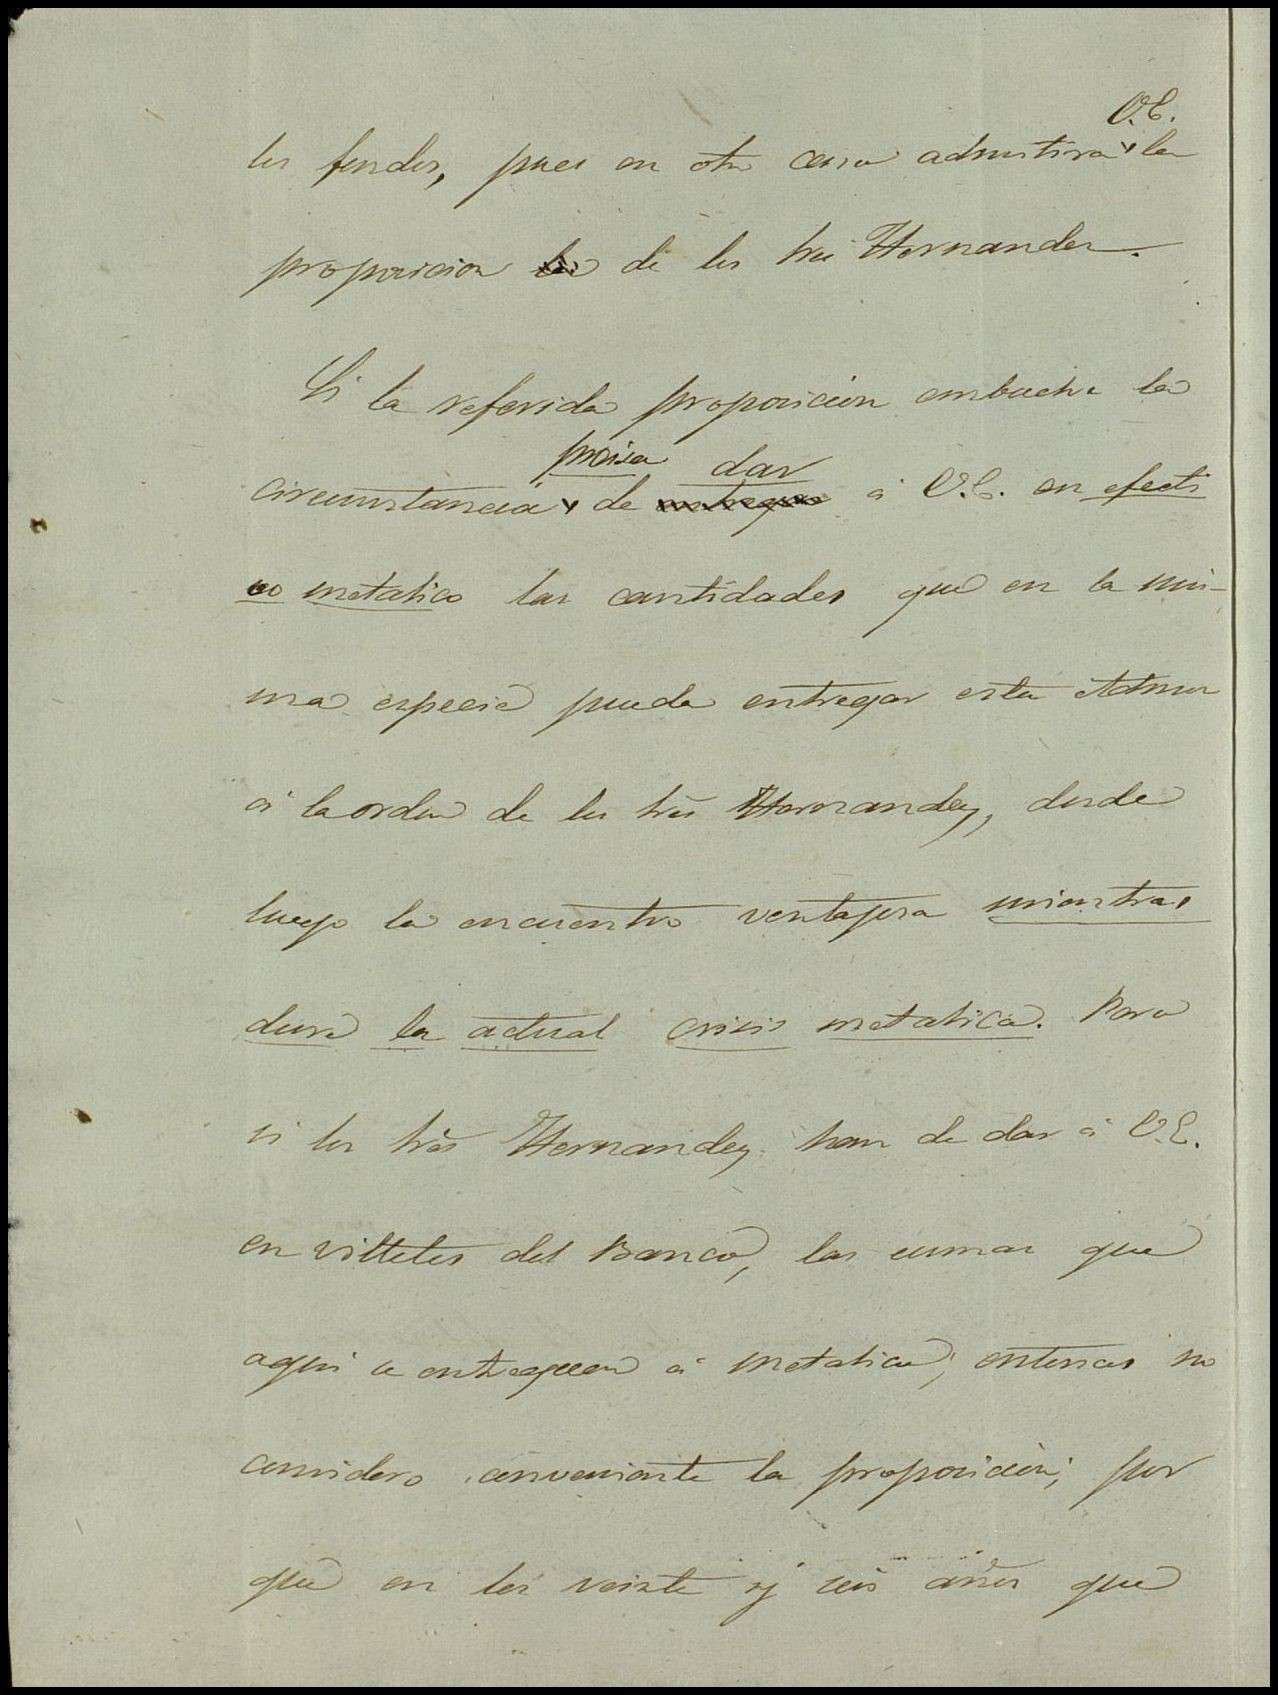 V.E.
los fondos, pues en otro caso admitira la
proposicion de los tres Hernandez.
Si la referida proposicion embuelve la
precisa dar
circunstancia de entregar á V.E. en efecti
vo metalico las cantidades que en la mis-
ma especie pueda entregar esta Admon
á la orden de los tres Hernandez, desde
luego la encuentro ventajosa mientras
dure la actual crisis metalica. Pero
si los tres Hernandez han de dar á V.E.
en villetes del Banco, las sumas que
aqui se entreguen á metalico, entonces no
considero conveniente la proposicion; por
que en los veinte y seis años que